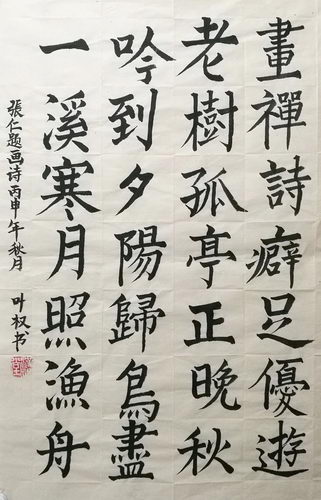 畫禪詩癖足優遊
老樹孤亭正晚秋
吟到夕陽歸鳥盡
一溪寒月照漁舟
張仁题画诗丙申年秋月
叶权书